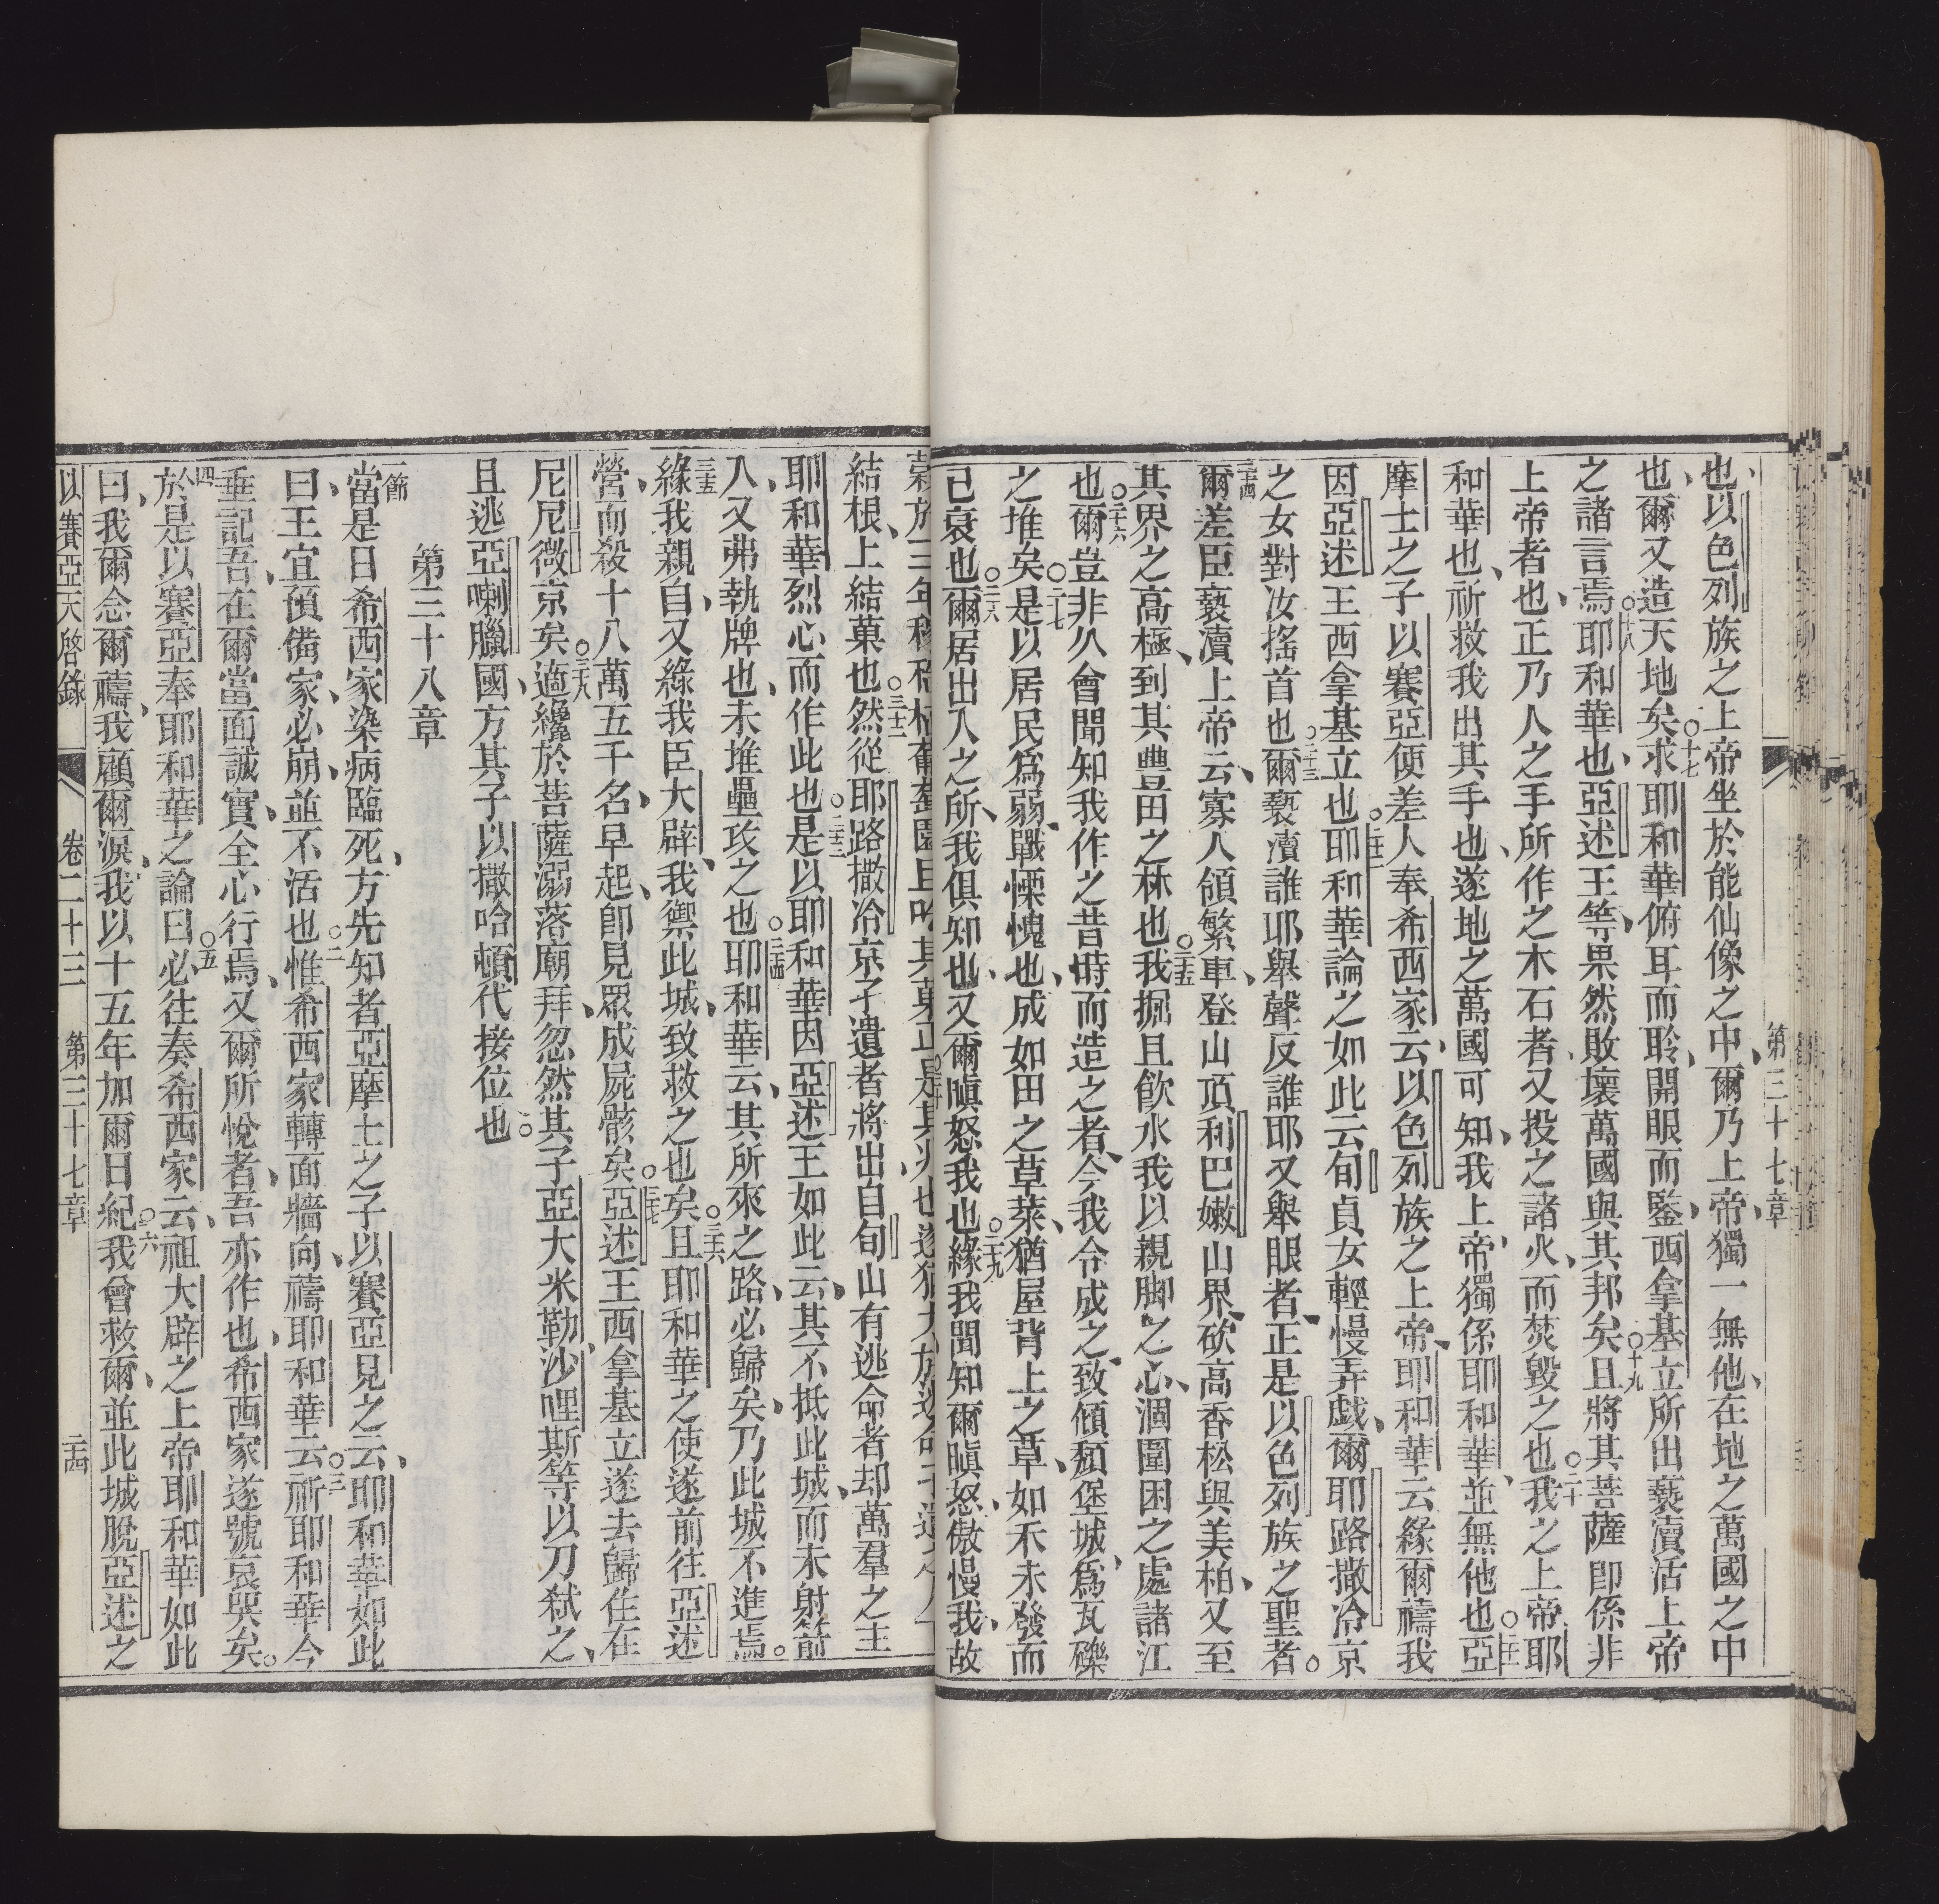 第三十七章
也、以色列族之上帝坐於能仙像之中、爾乃上帝、獨一無他、在地之萬國之中
也、爾又造天地矣○十七求耶和華俯耳而聆、開眼而鑒、西拿基立所出褻瀆活上帝
之諸言焉○十八耶和華也、亞述王等、果然敗壞萬國與其邦矣○十九且將其菩薩卽係非
上帝者也、正乃人之手所作之木石者、又投之諸火、而焚毀之也○二十我之上帝耶
和華也、祈救我出其手也、遂地之萬國可知、我上帝、獨係耶和華、並無他也○二十一亞
摩士之子以賽亞便差人奉希西家云、以色列族之上帝、耶和華云、緣爾禱我
因亞述王西拿基立也○二十二耶和華論之如此云、旬貞女輕慢弄戲、爾耶路撒冷京
之女對汝搖首也○二十三爾褻瀆誰耶、舉聲反誰耶、又舉眼者、正是以色列族之聖者○
二十四爾差臣褻瀆上帝云、寡人領繁車、登山頂利巴嫩山界、砍高香松與美柏、又至
其界之高極、到其豐田之林也○二十五我掘且飮水、我以親脚之心、涸圍困之處諸江
也○二十六爾豈非久會聞知我作之、昔時而造之者、今我令成之、致傾頽堡城、爲瓦礫
之堆矣○二十七是以居民爲弱、戰慄愧也、成如田之草萊、猶屋背上之草、如禾未發而
已衰也○二十八爾居出入之所、我俱知也、又爾瞋怒我也○二十九緣我聞知爾瞋怒、傲慢我、故
結根、上結菓也○三十二然從耶路撒冷京孑遺者將出、自旬山有逃命者、却萬羣之主
耶和華烈心而作此也○三十三是以耶和華因亞述王如此云、其不抵此城、而未射箭
入、又弗執牌也、未堆壘攻之也○三十四耶和華云、其所來之路、必歸矣、乃此城不進焉。
三十五緣我親自、又緣我臣大辟、我禦此城、致救之也矣○三十六且耶和華之使遂前往亞述
營、而殺十八萬五千名、早起、卽見眾成屍骸矣○三十七亞述王西拿基立遂去歸住在
尼尼微京矣○三十八適纔於菩薩溺落廟拜、忽然其子亞大米勒、沙哩斯等以刀弑之、
且逃亞喇臘國、方其子以撒哈頓代接位也○
第三十八章
一節當是日希西家染病臨死、方先知者亞摩士之子以賽亞見之云、耶和華如此
曰、王宜預備家、必崩、並不活也○二惟希西家轉面牆向、禱耶和華云○三祈耶和華今
垂記吾、在爾當面誠實、全心行焉、又爾所悅者、吾亦作也、希西家遂號哀哭矣。
四於是以賽亞奉耶和華之論曰○五必往奏希西家云、祖大辟之上帝耶和華如此
曰、我爾念爾禱、我顧爾淚、我以十五年加爾日紀○六我曾救爾、並此城脫亞述之
以賽亞天啓錄 卷二十三 第三十七章 二十四